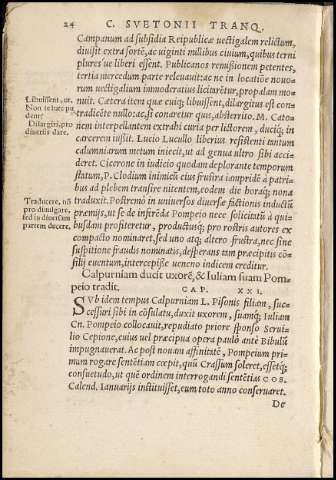 24 C. SVETONII TRANQ.
Campanum ad subsidia Reipublicæ uectigalem relictum,
diuisit extra sortē, ac uiginti millibus ciuium, quibus terni
plures ue liberi essent. Publicanos remissionem petentes,
tertia mercedum parte releuauit: ac ne in locatiōe nouo-
rum uectigalium immoderatius licitarētur, propalam mo-
nuit. Cætera item quæ cuiq; libuissent, dilargitus est con-
tradicēte nullo: ac, si conaretur quis, absterrito. M. Cato-
nem interpellantem extrahi curia per lictorem, duciq; in
carcerem iussit. Lucio Lucullo liberius resistenti tantum
calumniarum metum iniecit, ut ad genua ultro sibi acci-
deret. Cicerone in iudicio quodam deplorante temporum
statum, P. Clodium inimicū eius frustra iampridē a patri-
bus ad plebem transire nitentem, eodem die horaq; nona
traduxit. Postremò in uniuersos diuersæ factionis inductū
præmijs, ut se de inferēda Pompeio nece solicitatū à qui-
busdam profiteretur, productusq; pro rostris autores ex
compacto nominaret, sed uno atq; altero frustra, nec sine
suspitione fraudis nominatis, desperans tam præcipitis cō-
silij euentum, intercepisse ueneno indicem creditur.
Libuissent, ut,
Non te lubeo pu
dent?
Dilargiri, pro
diuersis dare.
Traducere, nō
pro diuulgare,
sed in diuersam
partem ducere.
Calpurniam ducit uxorē, & Iuliam suam Pom-
peio tradit. CAP. XXI.
SVb idem tempus Calpurniam L. Pisonis filiam, suc-
cessuri sibi in cōsulatu, duxit uxorem, suamq; Iuliam
Cn. Pompeio collocauit, repudiato priore sponso Serui-
lio Cepione, cuius uel præcipua opera paulò antè Bibulū
impugnauerat. Ac post nouam affinitatē, Pompeium pri-
mum rogare sententiam cœpit, quū Crassum soleret, essetq;
consuetudo, ut quē ordinem interrogandi sentētias COS.
Calend. Ianuarijs instituisset, eum toto anno conseruaret.
De